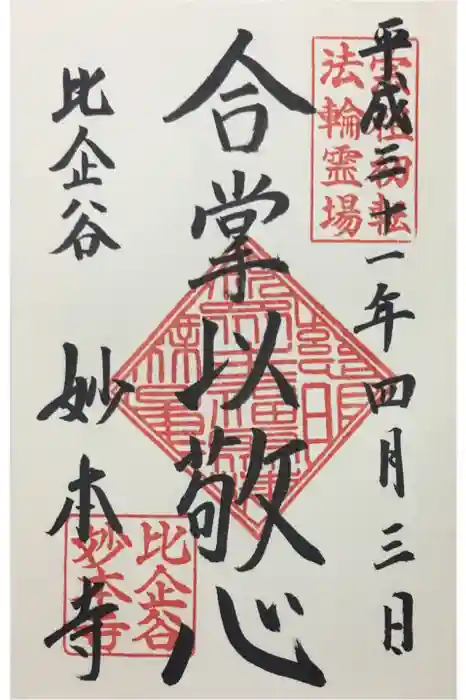 平成三十一年四月三日
宗祖初転
法輪霊場
合掌以敬心
比企谷
妙本寺
比企谷
妙本寺